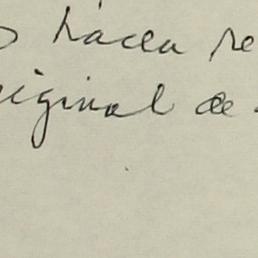 hacea re
original de